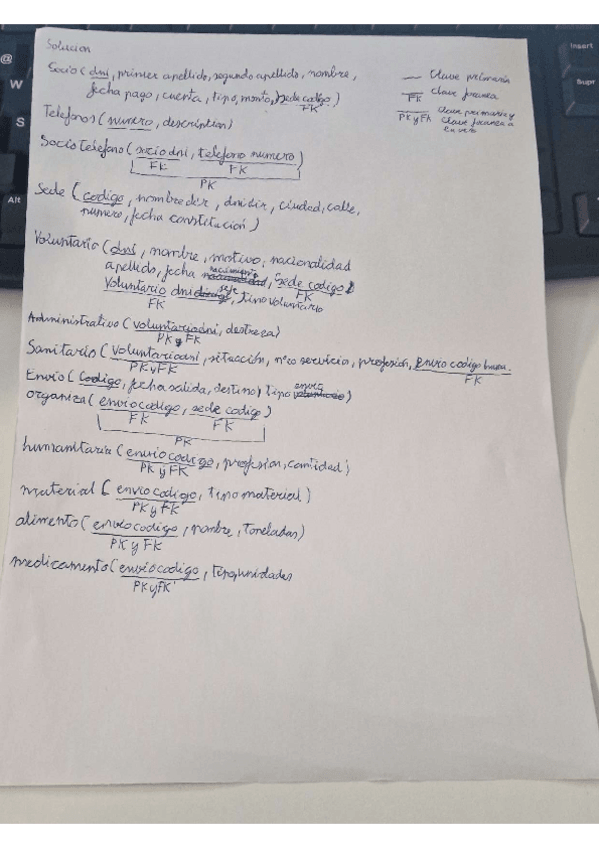 Solucion
Socio (dni, primer apellido, segundo apellido, nombre,
fecha pago, cuenta, tipo, monto, sede codigo)
FK
— Clave primaria
FK clave foranea
PK y FK clave primaria y
clave foranea a
la vez
Telefonos (numero, description)
Socio Telefono (socio dni, telefono numero)
FK FK
PK
Sede (codigo, nombre dir, dni dir, ciudad, calle,
numero, fecha constitución)
Voluntario (dni, nombre, motivo, nacionalidad
apellido, fecha nacimiento, sede codigo
FK
Voluntario dni jefe, tipo voluntario
FK
Administrativo (voluntario dni, destreza)
PK y FK
Sanitario (voluntario dni, sitacción, nºco servicio, profesión, Envio codigo hum.
PK y FK FK
Envio (codigo, fecha salida, destino, tipo envio)
organiza (envio codigo, sede codigo)
FK FK
PK
humanitaria (envio codigo, profesion, cantidad)
PK y FK
material (envio codigo, tipo material)
PK y FK
alimento (envio codigo, nombre, toneladas)
PK y FK
medicamento (envio codigo, tipo, unidades
PK y FK
@
W
S
Alt
Insert
Supr